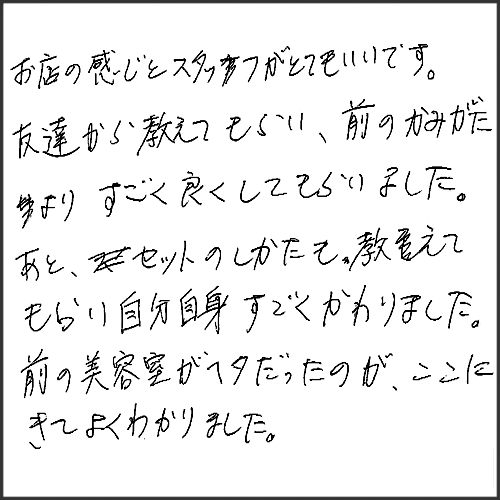 お店の感じとスタッフがとてもいいです。
友達から教えてもらい、前のかみがた
より すごく良くしてもらいました。
あと、セットのしかたも教えて
もらい自分自身すごくかわりました。
前の美容室がヘタだったのが、ここに
きてよくわかりました。